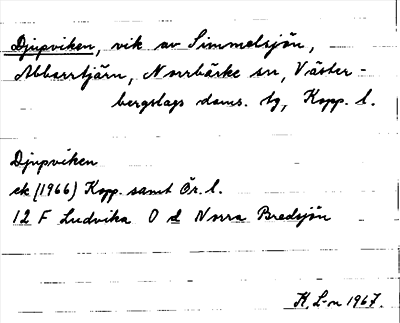 Djupviken, vik av Simmelsjön,
Abborrtjärn, Norrbärke sn, Väster-
bergslags doms. tg, Kopp. l.
Djupviken
ek (1966) Kopp. samt Ör. l.
12 F Ludvika O d Norra Bredsjön
K. L-n 1967.